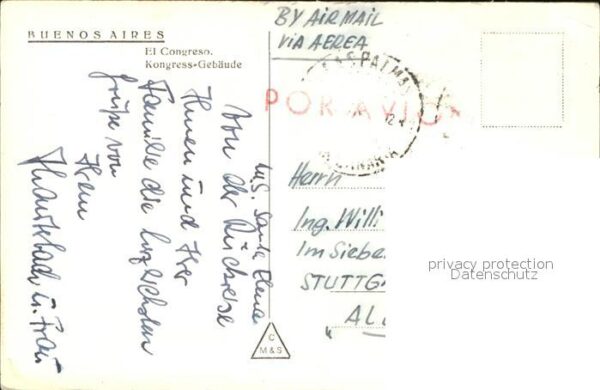 BUENOS AIRES
El Congreso.
Kongress-Gebäude
BY AIR MAIL
VIA AEREA
LAS PALMAS
POR AVIO
M.S. Santa Elena
Von der Rückreise
Ihnen und Ihrer
Familie die herzlichsten
Grüße von
Ihrem
u. Frau
Herrn
Ing. Willi
Im Siebe
STUTTGA
"AL
privacy protection
Datenschutz
C
M&S